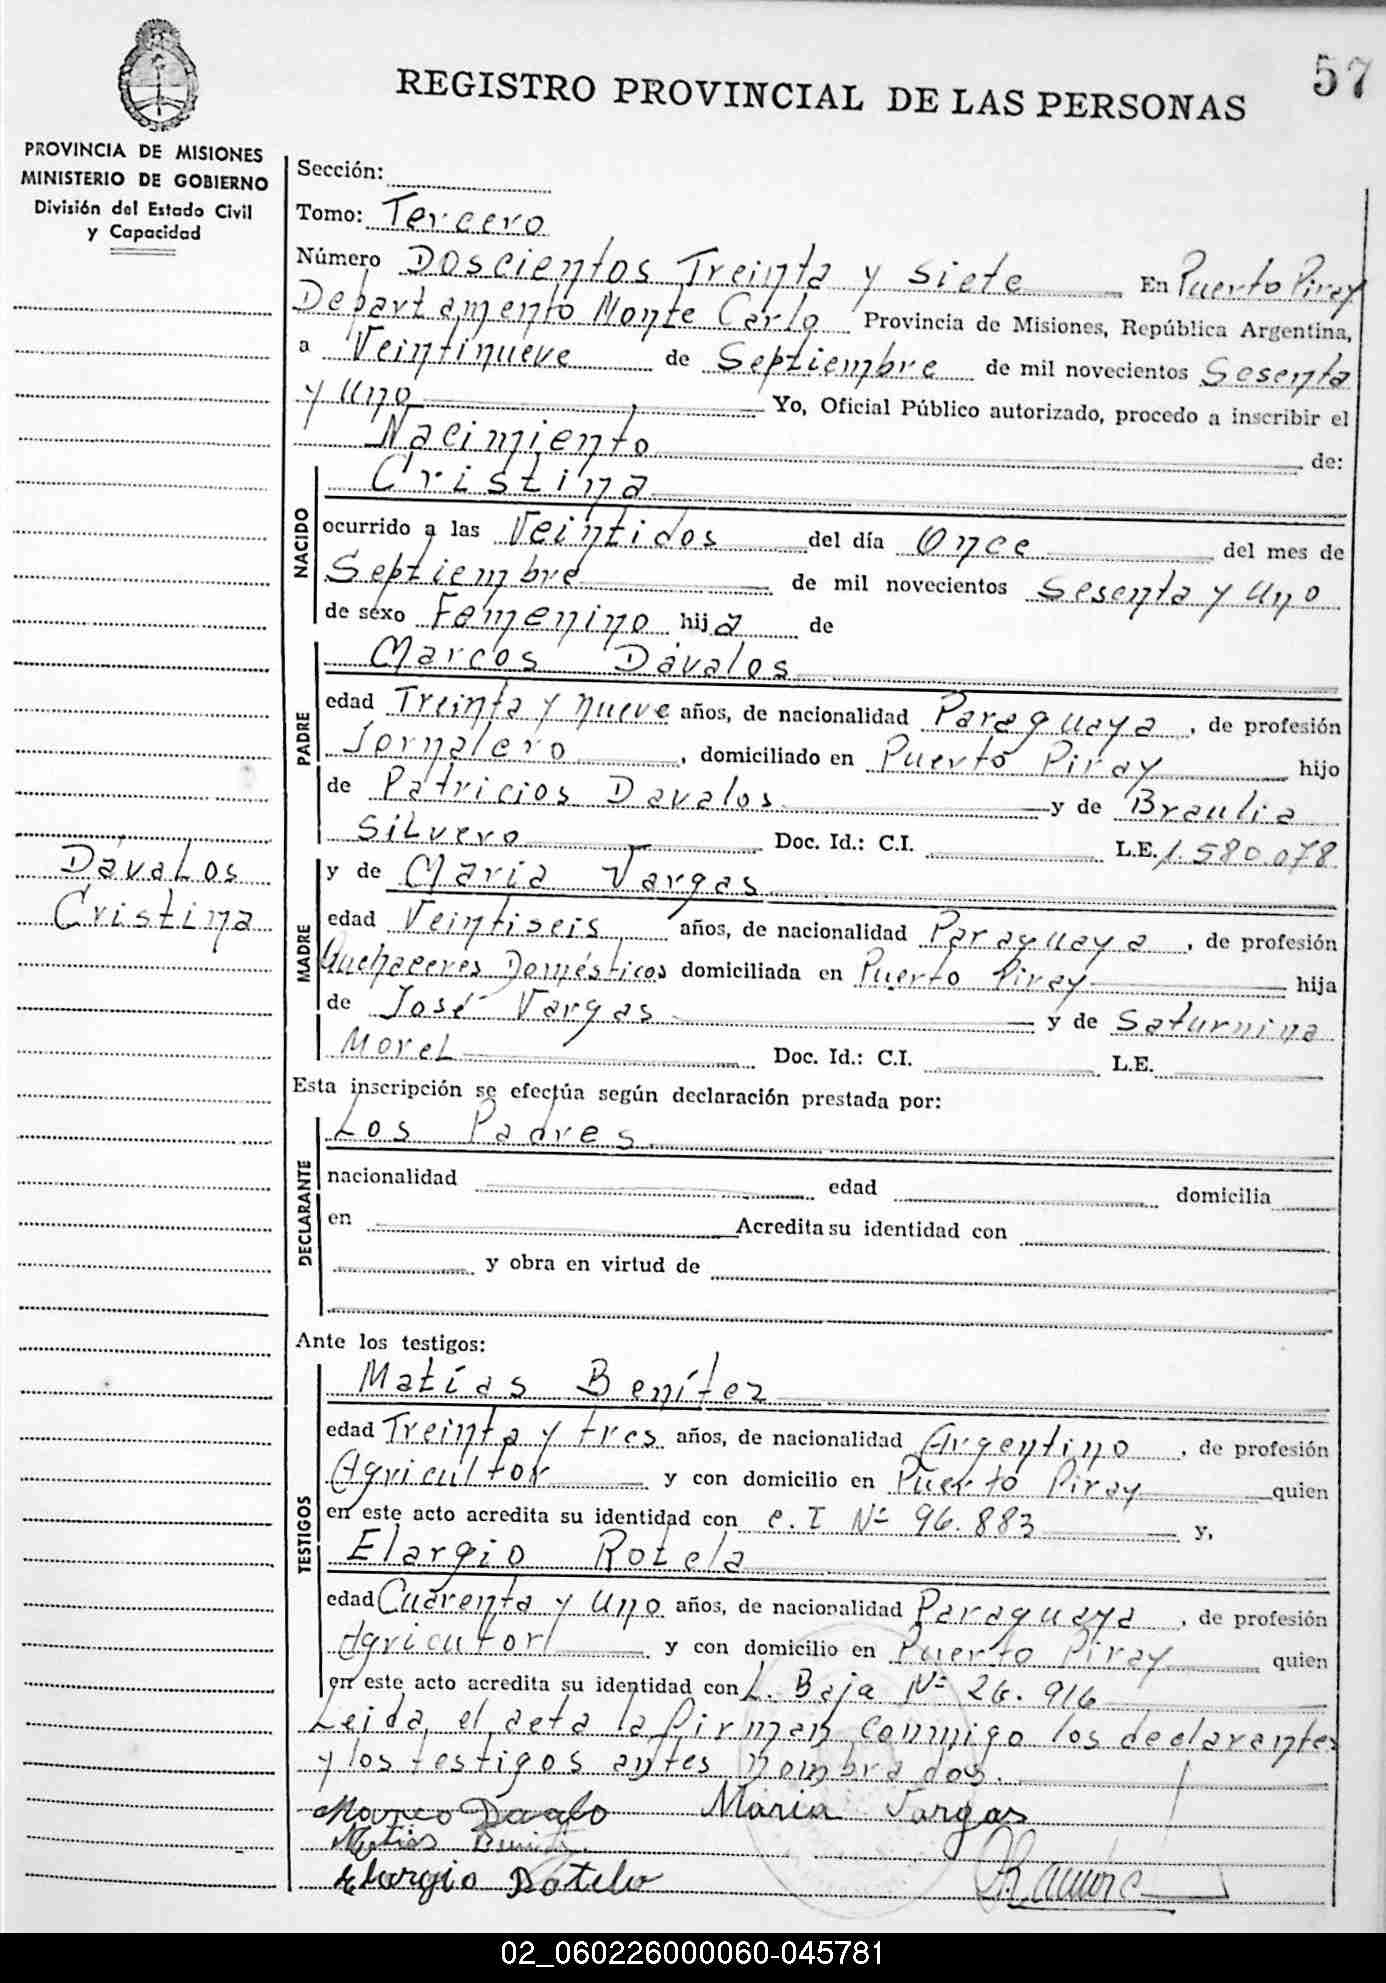 57
REGISTRO PROVINCIAL DE LAS PERSONAS
PROVINCIA DE MISIONES
MINISTERIO DE GOBIERNO
División del Estado Civil
y Capacidad
Sección:
Tomo: Tercero
Número Doscientos Treinta y siete En Puerto Piray
Departamento Monte Carlo Provincia de Misiones, República Argentina,
a Veintinueve de Septiembre de mil novecientos Sesenta
y Uno Yo, Oficial Público autorizado, procedo a inscribir el
Nacimiento de:
NACIDO
Cristina
ocurrido a las Veintidos del día Once del mes de
Septiembre de mil novecientos Sesenta y Uno
de sexo Femenino hija de
PADRE
Marcos Dávalos
edad Treinta y nueve años, de nacionalidad Paraguaya, de profesión
Jornalero, domiciliado en Puerto Piray hijo
de Patricios Davalos y de Braulia
Silvero Doc. Id.: C.I. L.E. 1.580.078
Dávalos
Cristina
MADRE
y de María Vargas
edad Veintiseis años, de nacionalidad Paraguaya, de profesión
Quehaceres Domésticos domiciliada en Puerto Piray hija
de José Vargas y de Saturnina
Morel Doc. Id.: C.I. L.E.
Esta inscripción se efectúa según declaración prestada por:
DECLARANTE
Los Padres
nacionalidad edad domicilia
en Acredita su identidad con
y obra en virtud de
Ante los testigos:
TESTIGOS
Matías Benítez
edad Treinta y tres años, de nacionalidad Argentino, de profesión
Agricultor y con domicilio en Puerto Piray quien
en este acto acredita su identidad con C. I Nº 96.883 y,
Elargio Rotela
edad Cuarenta y Uno años, de nacionalidad Paraguaya, de profesión
Agricutor y con domicilio en Puerto Piray quien
en este acto acredita su identidad con L. Baja Nº 26.916
Leida el acta la firman conmigo los declarantes
y los testigos antes nombrados.
Marco Davalo Maria Vargas
Matias
Elargio Rotela
02_060226000060-045781